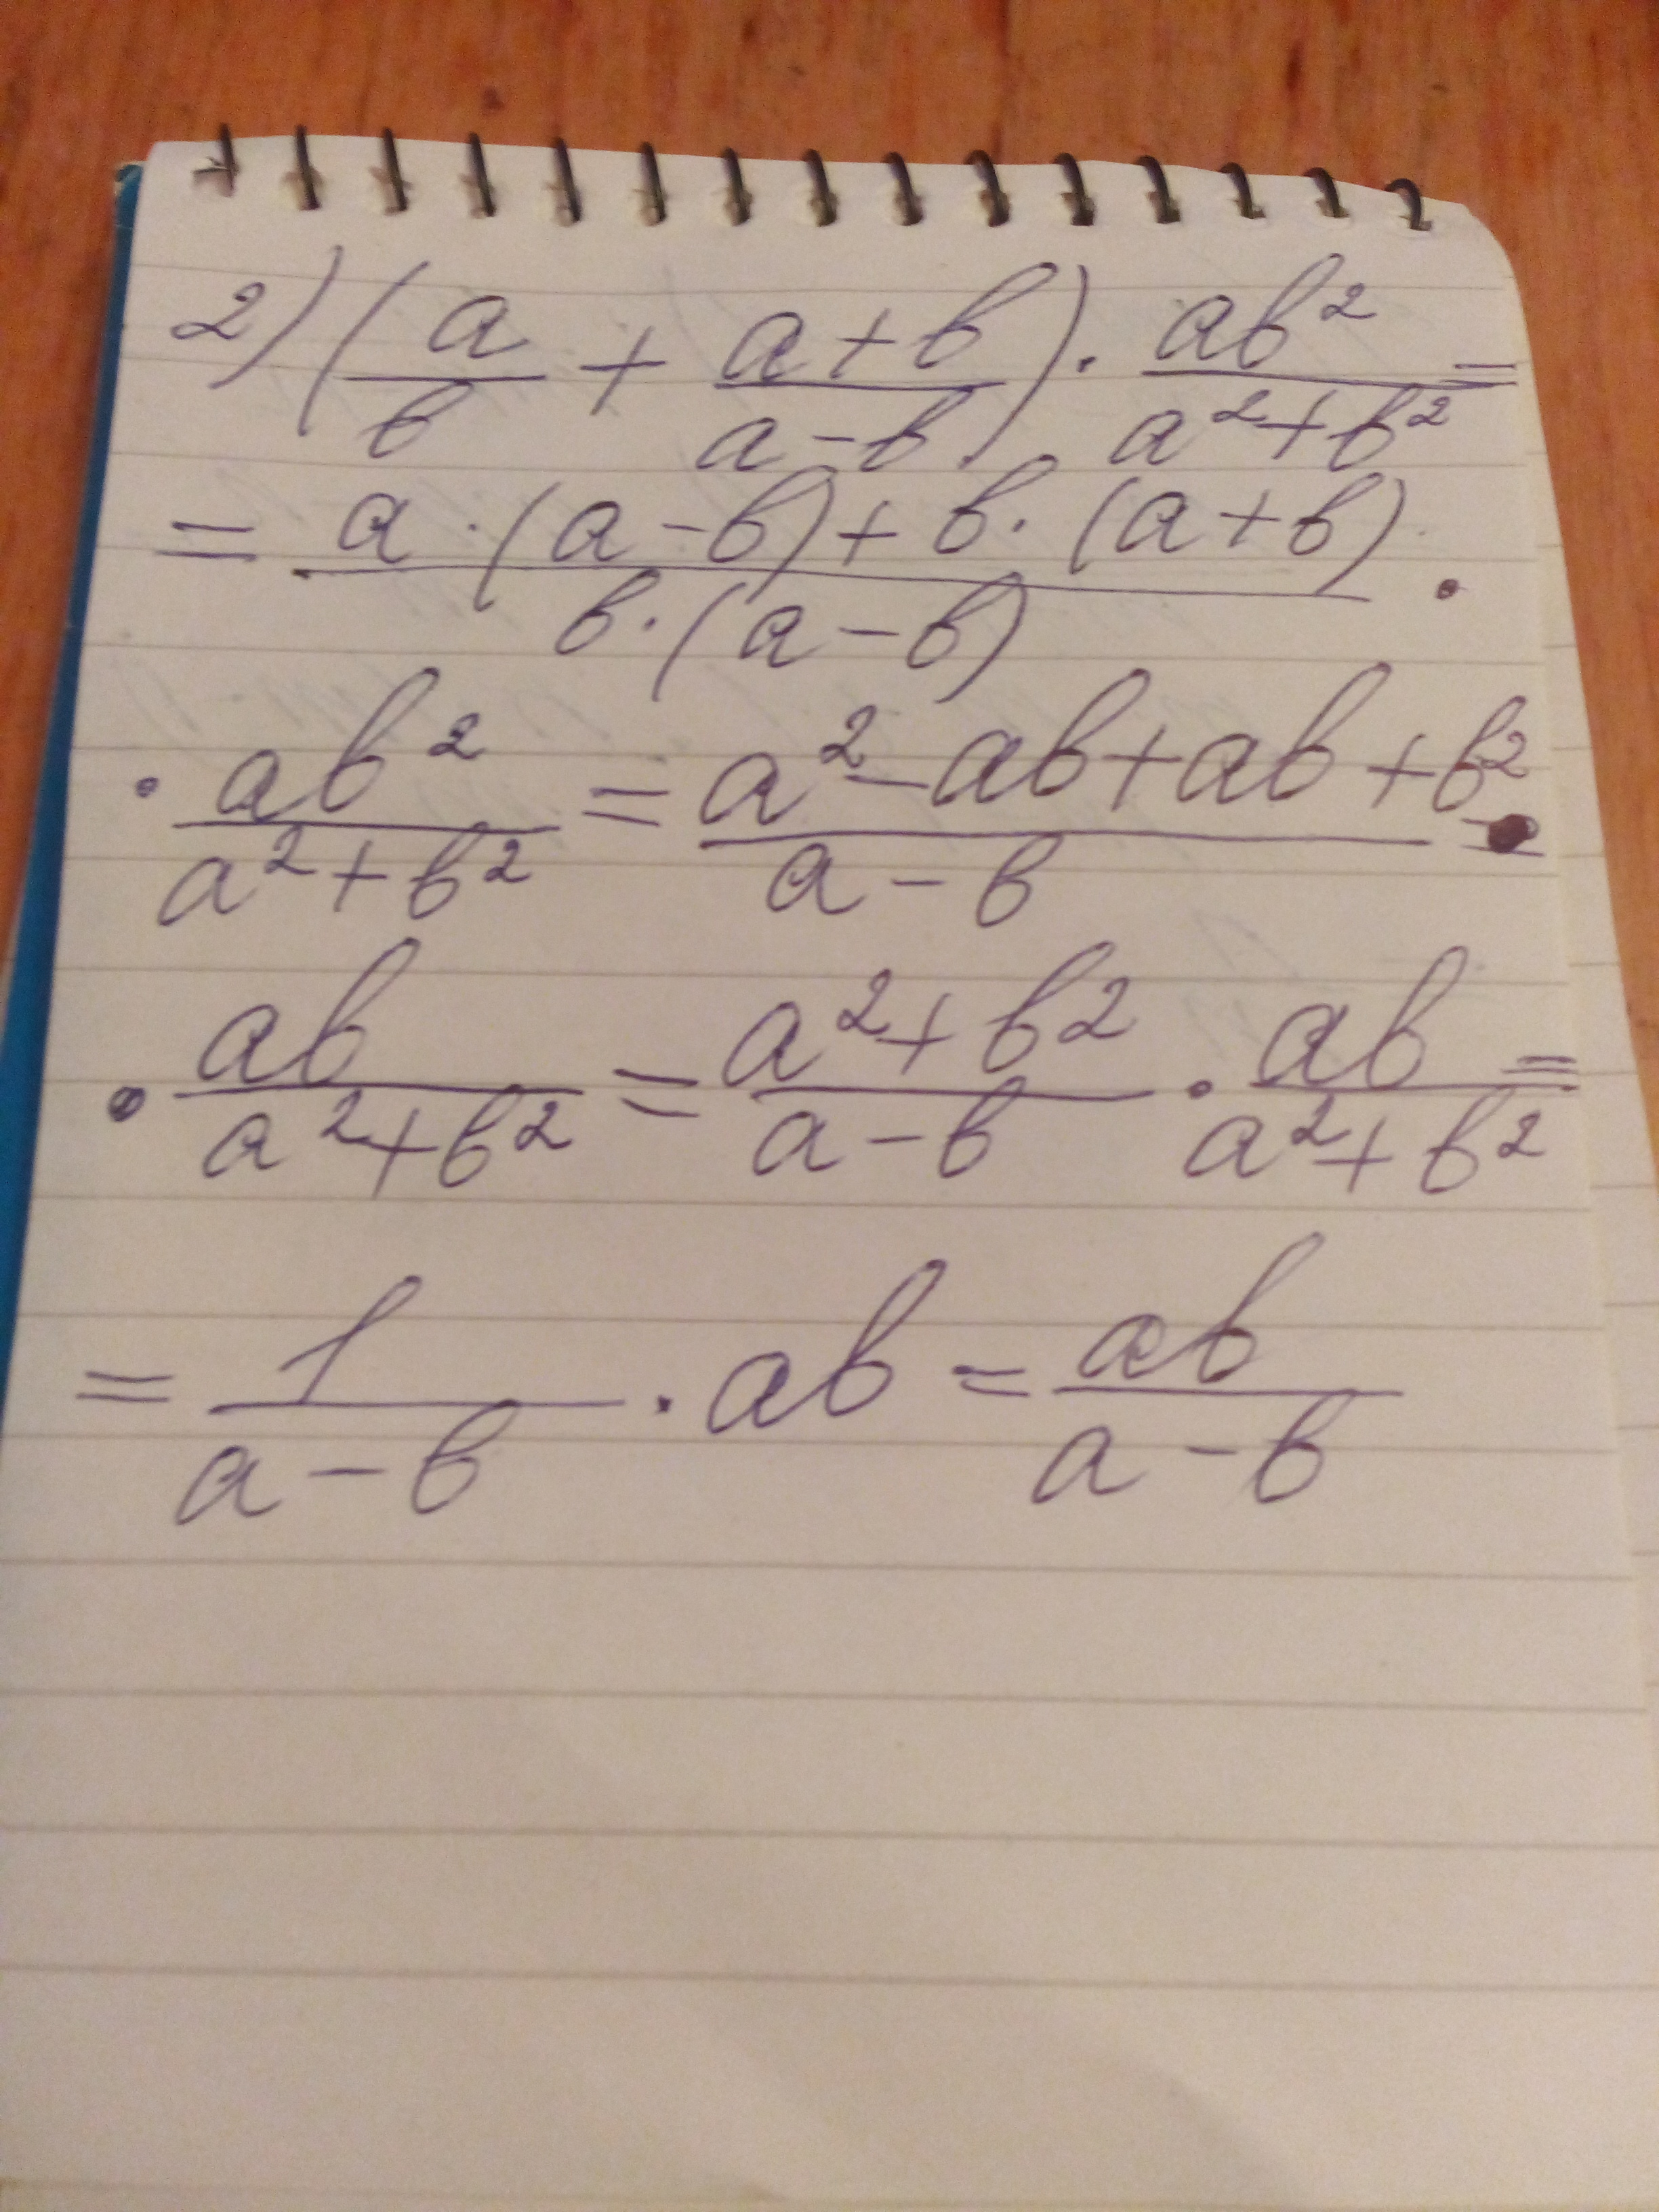 2) (a/b + (a+b)/(a-b)) · ab²/(a²+b²) =
= (a·(a-b)+b·(a+b))/(b·(a-b)) ·
· ab²/(a²+b²) = (a²-ab+ab+b²)/(a-b) ·
· ab/(a²+b²) = (a²+b²)/(a-b) · ab/(a²+b²) =
= 1/(a-b) · ab = ab/(a-b)